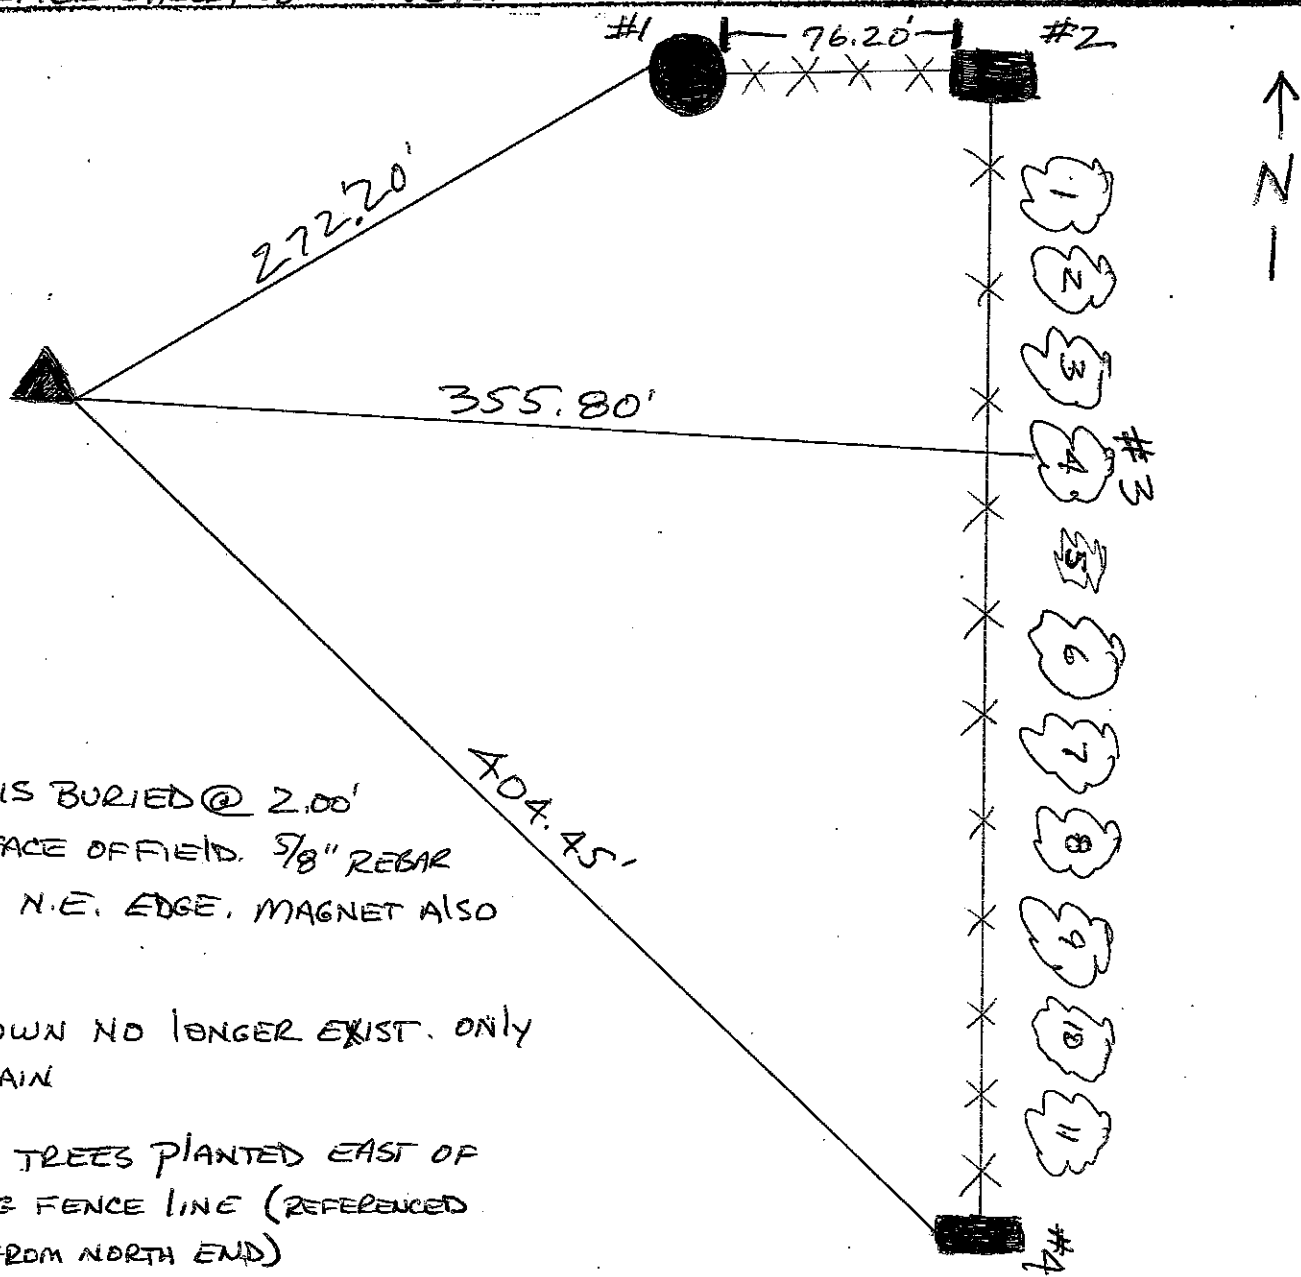 #1
76.20'
#2
N
272.20'
355.80'
404.45'
1
2
3
4
#3
5
6
7
8
9
10
11
#4
IS BURIED @ 2.00'
FACE OF FIELD. 5/8" REBAR
N.E. EDGE. MAGNET ALSO
OWN NO LONGER EXIST. ONLY
AIN
TREES PLANTED EAST OF
G FENCE LINE (REFERENCED
FROM NORTH END)